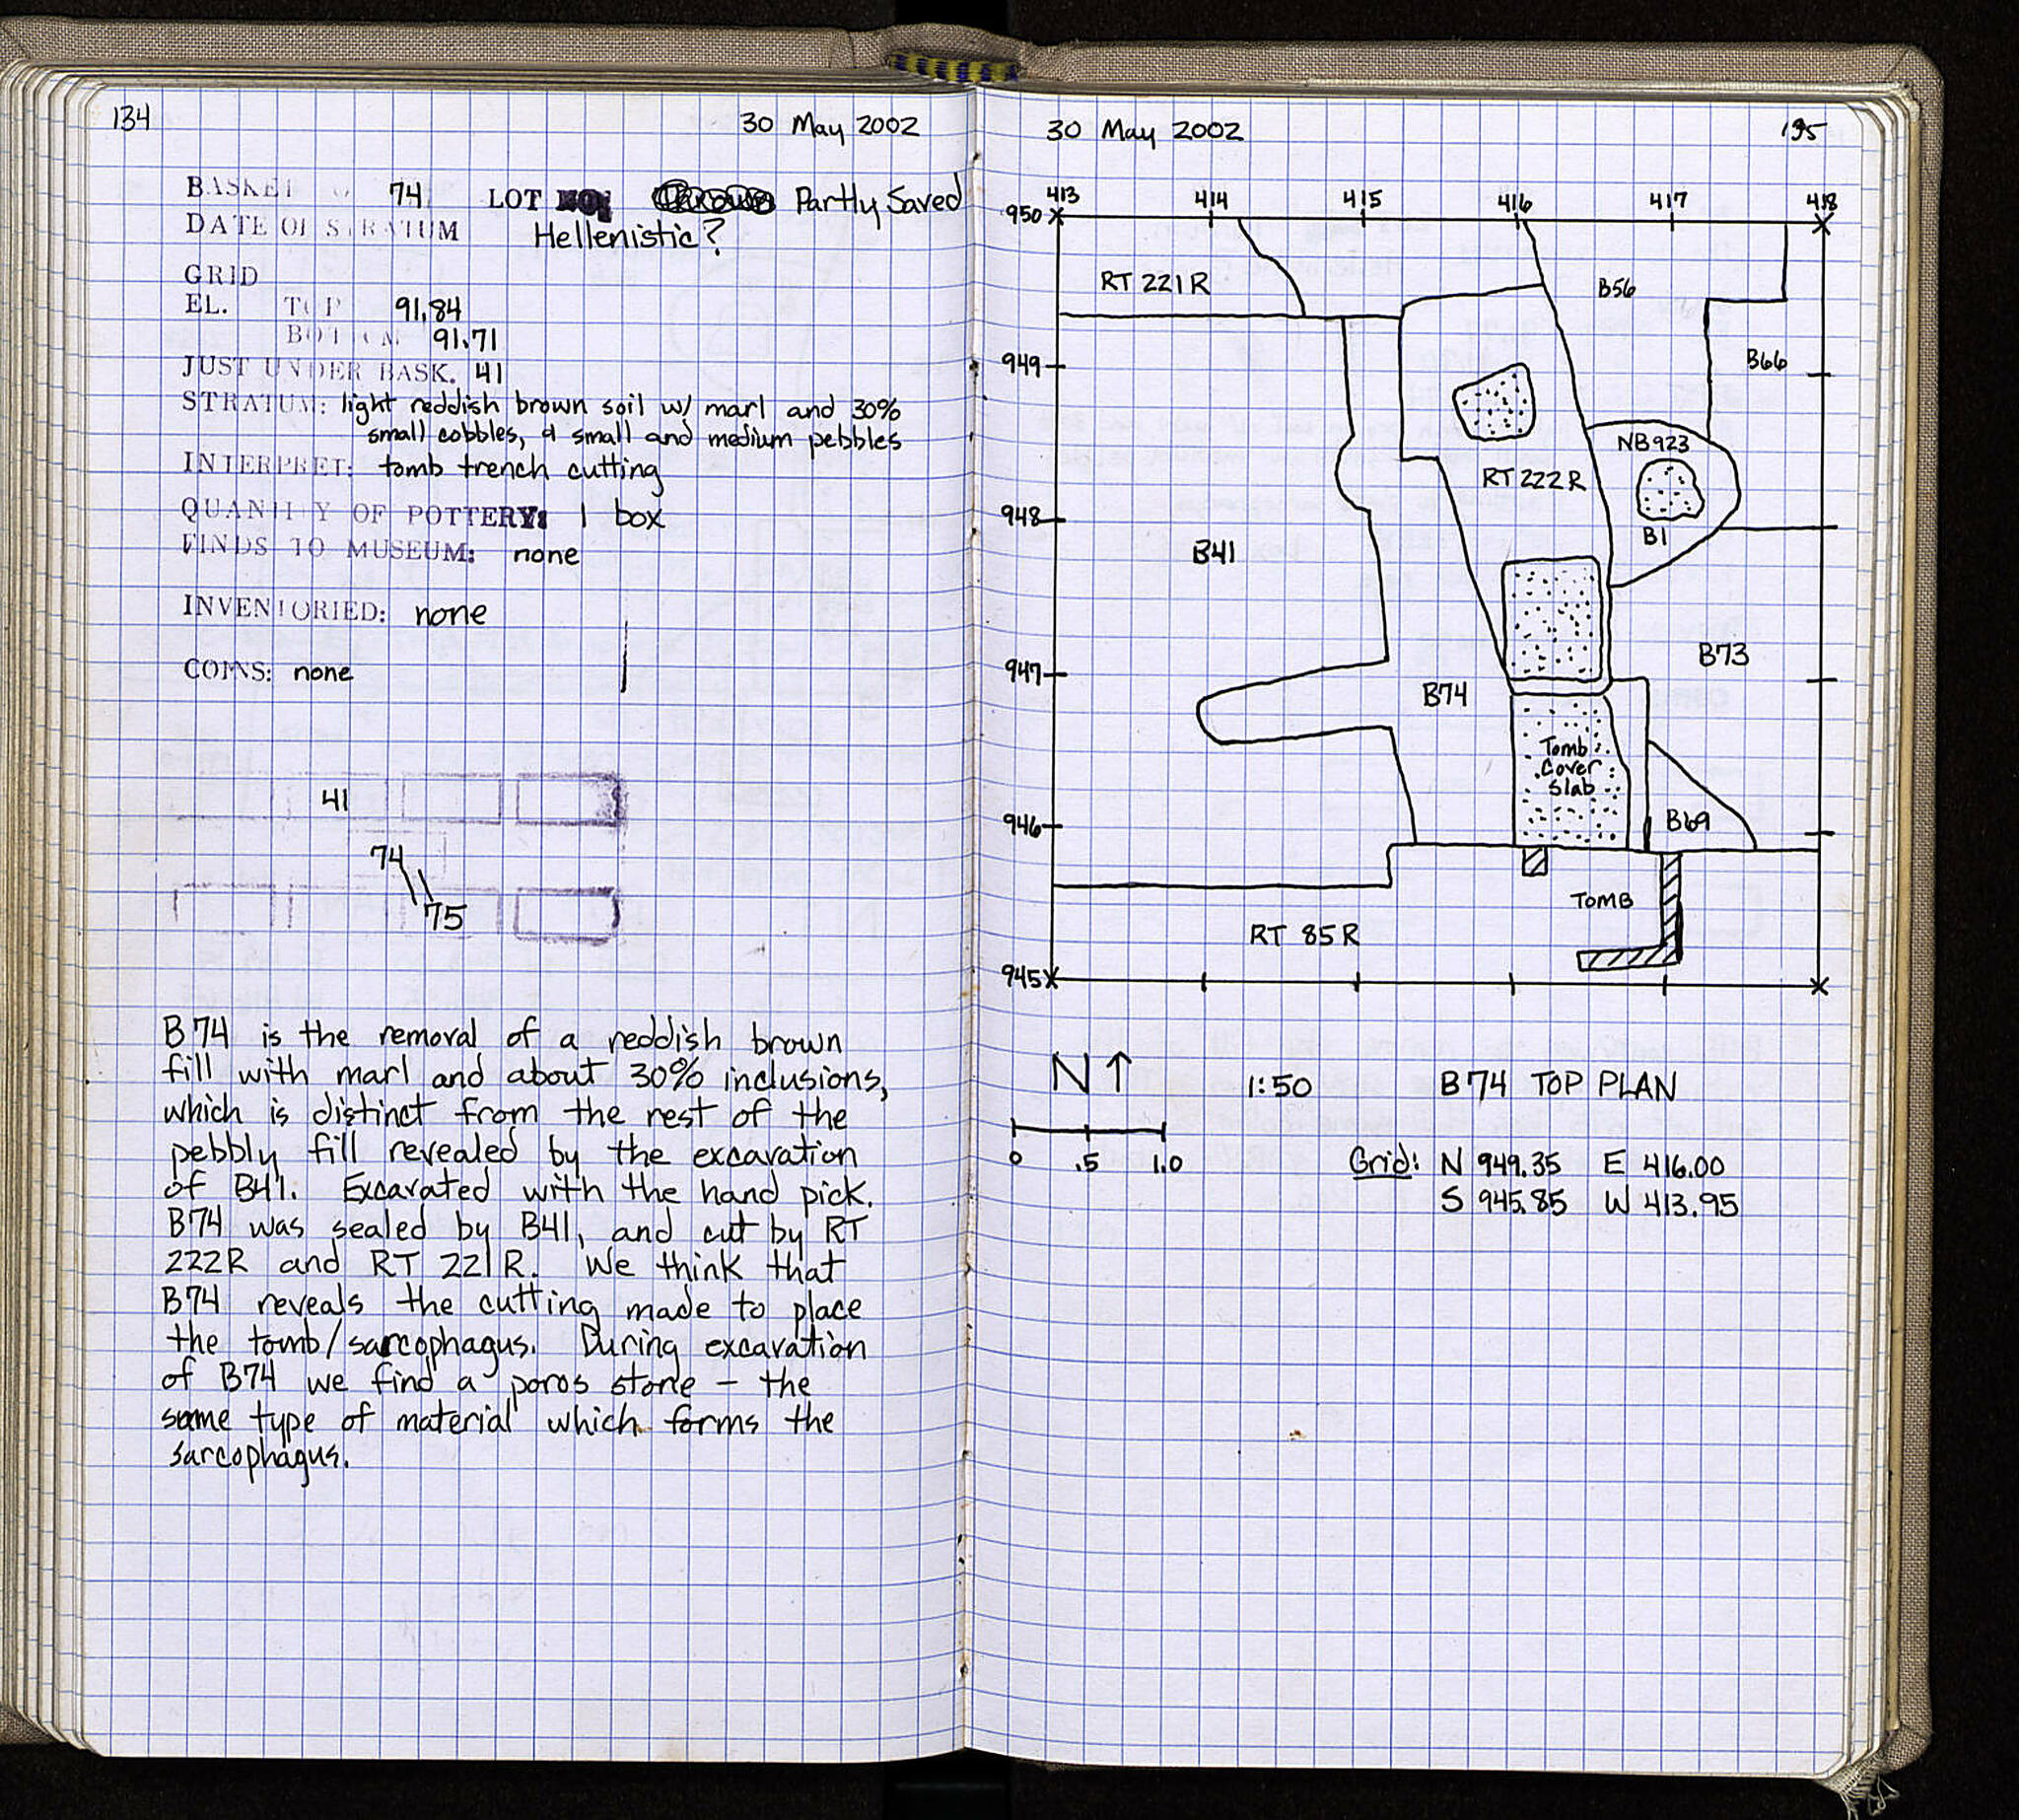 134
30 May 2002
BASKET 74 LOT NO: Partly Saved
DATE OF STRATUM Hellenistic?
GRID
EL. TOP 91.84
BOTTOM 91.71
JUST UNDER BASK. 41
STRATUM: light reddish brown soil w/ marl and 30%
small cobbles, a small and medium pebbles
INTERPRET: tomb trench cutting
QUANTITY OF POTTERY: 1 box
FINDS TO MUSEUM: none
INVENTORIED: none
COINS: none
41
74
75
B74 is the removal of a reddish brown
fill with marl and about 30% inclusions,
which is distinct from the rest of the
pebbly fill revealed by the excavation
of B41. Excavated with the hand pick.
B74 was sealed by B41, and cut by RT
222R and RT 221R. We think that
B74 reveals the cutting made to place
the tomb/sarcophagus. During excavation
of B74 we find a poros stone – the
same type of material which forms the
sarcophagus.
30 May 2002
135
413 414 415 416 417 418
950
RT 221R
B56
949
B66
NB923
RT 222R
948
B1
B41
B73
947
B74
Tomb
Cover
Slab
946
B69
TOMB
RT 85R
945
N ↑ 1:50 B74 TOP PLAN
0 .5 1.0
Grid: N 949.35 E 416.00
S 945.85 W 413.95